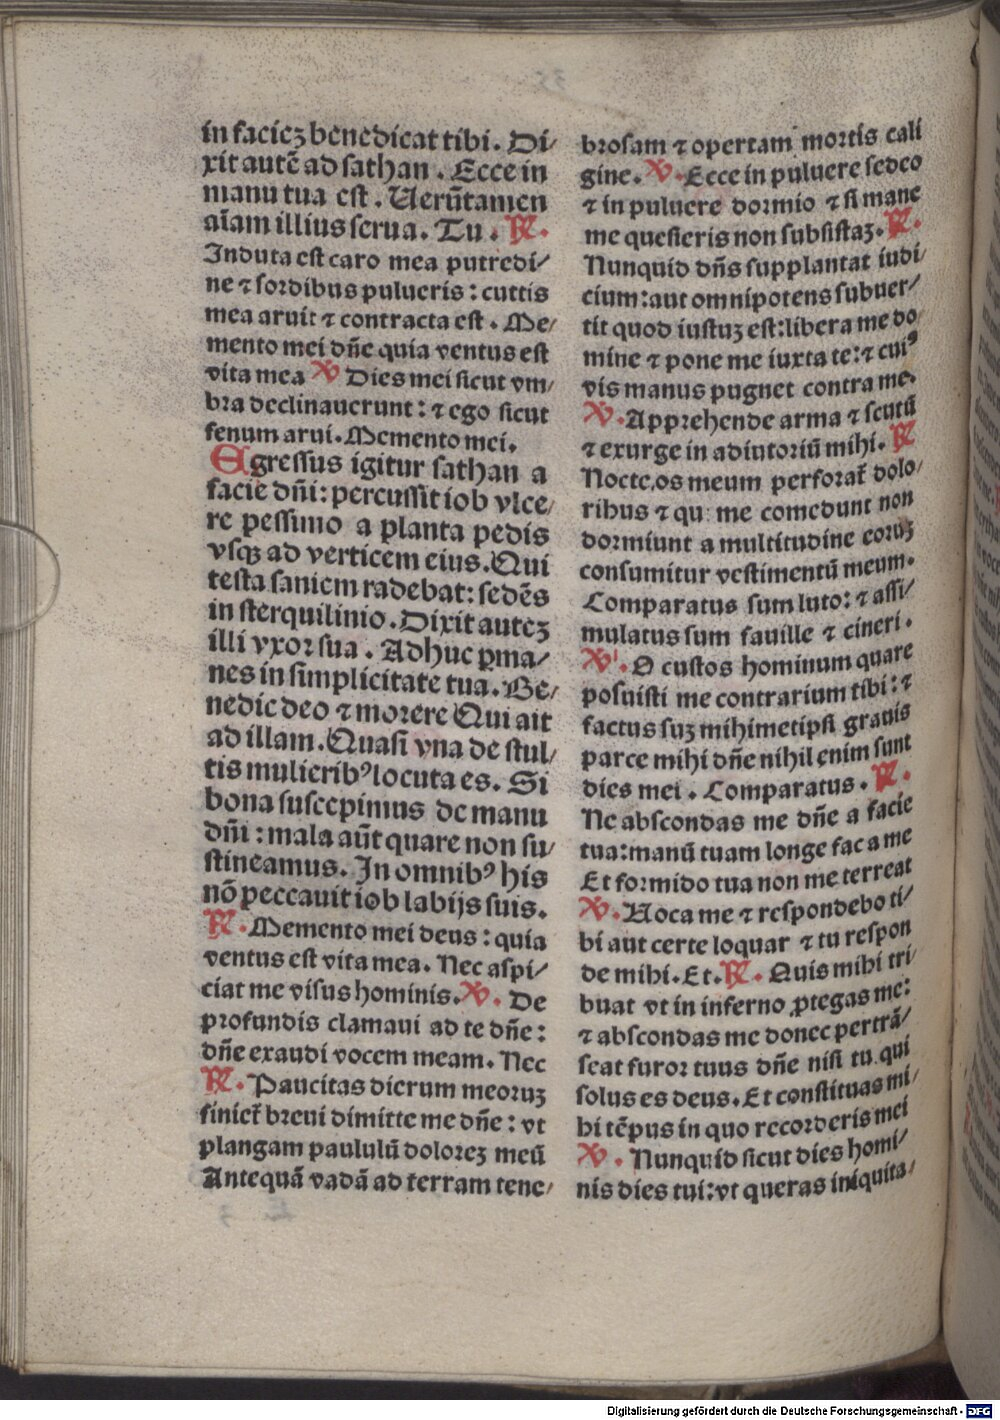 in faciez benedicat tibi. Di⸗
xit autē ad sathan. Ecce in
manu tua est. Uerūtamen
aīam illius serua. Tu. ℟.
Induta est caro mea putredi⸗
ne ⁊ sordibus pulueris: cuttis
mea aruit ⁊ contracta est. Me⸗
mento mei dn̄e quia ventus est
vita mea ℣ Dies mei sicut vm⸗
bra declinauerunt: ⁊ ego sicut
fenum arui. Memento mei.
Egressus igitur sathan a
facie dn̄i: percussit iob vlce⸗
re pessimo a planta pedis
vsqꝫ ad verticem eius. Qui
testa saniem radebat: sedēs
in sterquilinio. Dixit autez
illi vxor sua. Adhuc ꝑma⸗
nes in simplicitate tua. Be⸗
nedic deo ⁊ morere Qui ait
ad illam. Quasi vna de stul⸗
tis mulieribꝰ locuta es. Si
bona suscepimus de manu
dn̄i: mala aūt quare non su⸗
stineamus. In omnibꝰ his
nō peccauit iob labijs suis.
℟. Memento mei deus: quia
ventus est vita mea. Nec aspi⸗
ciat me visus hominis. ℣. De
profundis clamaui ad te dn̄e:
dn̄e exaudi vocem meam. Nec
℟. Paucitas dierum meoruz
finiet̄ breui dimitte me dn̄e: vt
plangam paululū dolorez meū
Antequā vadā ad terram tene⸗
brosam ⁊ opertam mortis cali
gine. ℣. Ecce in puluere sedeo
⁊ in puluere dormio ⁊ si mane
me quesieris non subsistaz. ℟.
Nunquid dn̄s supplantat iudi⸗
cium: aut omnipotens subuer⸗
tit quod iustuz est: libera me do⸗
mine ⁊ pone me iuxta te: ⁊ cuiꝰ
vis manus pugnet contra me.
℣. Apprehende arma ⁊ scutū
⁊ exurge in adiutoriū mihi. ℟
Nocte os meum perforat̄ dolo⸗
ribus ⁊ qui me comedunt non
dormiunt a multitudine eoruz
consumitur vestimentū meum.
Comparatus sum luto: ⁊ assi⸗
mulatus sum fauille ⁊ cineri.
℣. O custos hominum quare
posuisti me contrarium tibi: ⁊
factus suz mihimetipsi grauis
parce mihi dn̄e nihil enim sunt
dies mei. Comparatus. ℟.
Ne abscondas me dn̄e a facie
tua: manū tuam longe fac a me
Et formido tua non me terreat
℣. Uoca me ⁊ respondebo ti⸗
bi aut certe loquar ⁊ tu respon
de mihi. Et. ℟. Quis mihi tri⸗
buat vt in inferno ꝓtegas me:
⁊ abscondas me donec pertrā⸗
seat furor tuus dn̄e nisi tu qui
solus es deus. Et constituas mi⸗
hi tēpus in quo recorderis mei
℣. Nunquid sicut dies homi⸗
nis dies tui: vt queras iniquita⸗
Digitalisierung gefördert durch die Deutsche Forschungsgemeinschaft - DFG